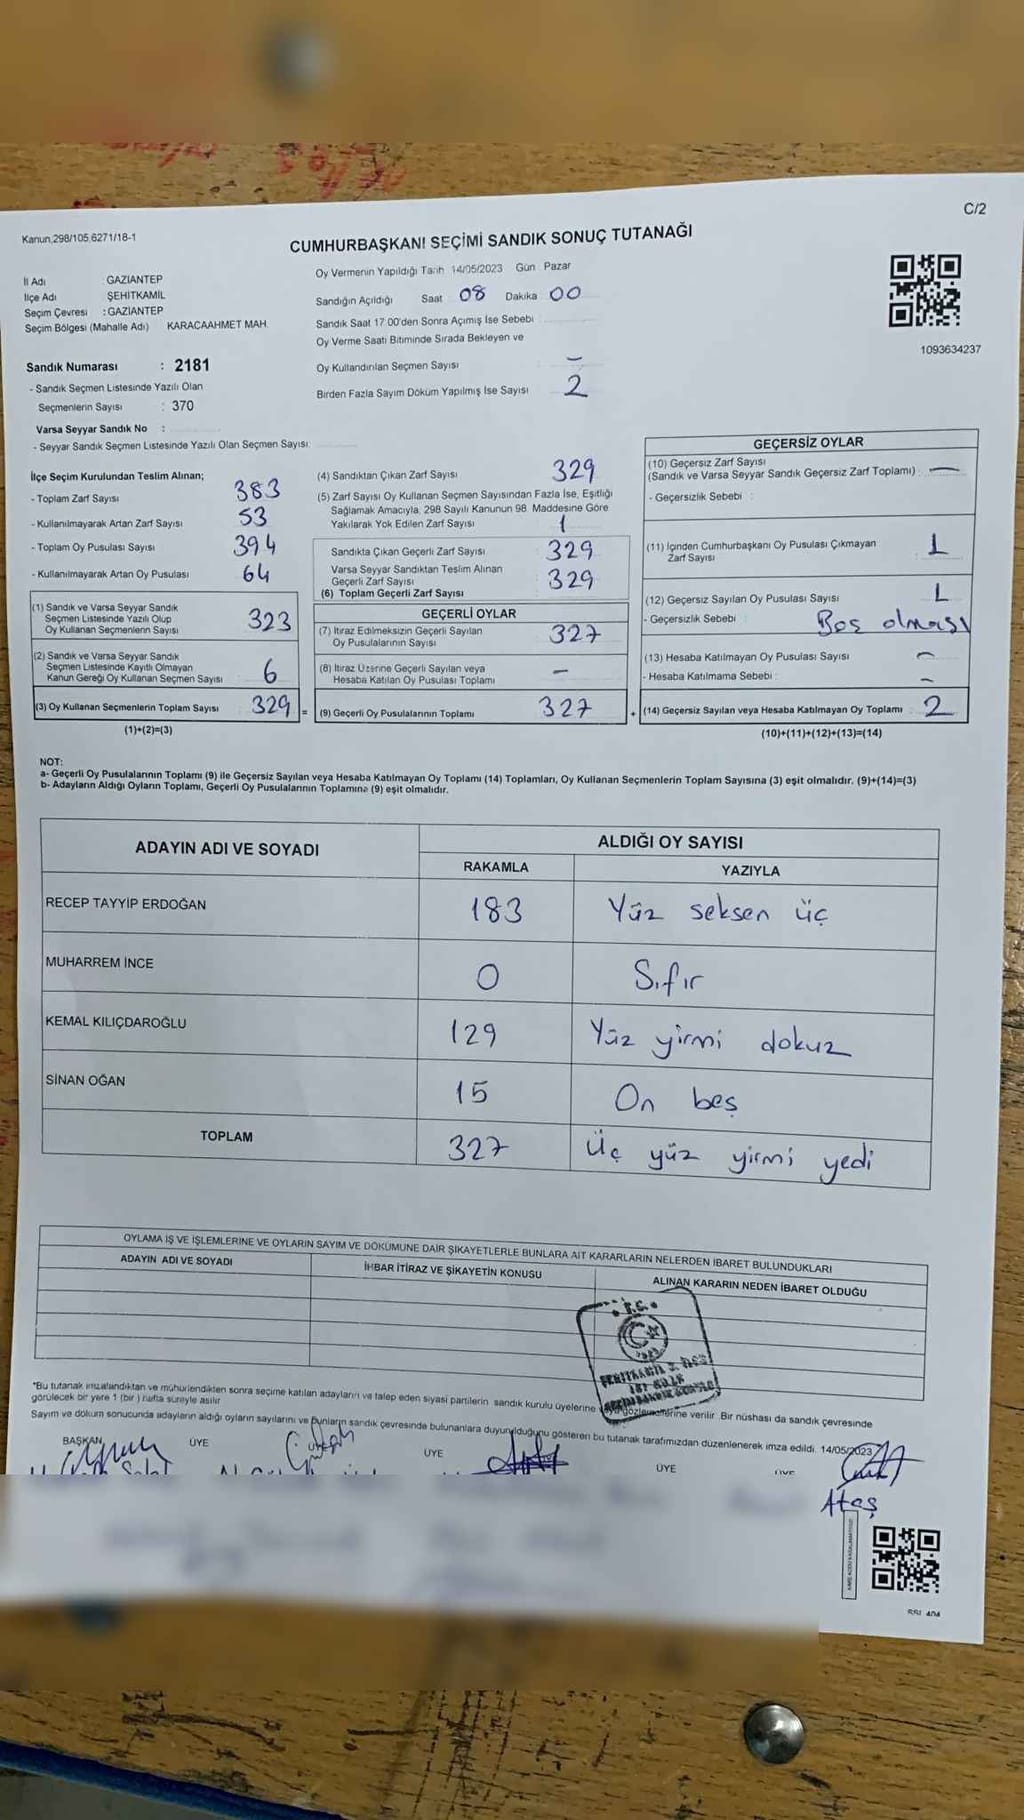 C/2
Kanun,298/105,6271/18-1
CUMHURBAŞKANI SEÇİMİ SANDIK SONUÇ TUTANAĞI
İl Adı : GAZİANTEP
İlçe Adı ŞEHİTKAMİL
Seçim Çevresi : GAZİANTEP
Seçim Bölgesi (Mahalle Adı) KARACAAHMET MAH.
Oy Vermenin Yapıldığı Tarih 14/05/2023 Gün Pazar
Sandığın Açıldığı Saat 08 Dakika 00
Sandık Saat 17:00'den Sonra Açımış İse Sebebi
Oy Verme Saati Bitiminde Sırada Bekleyen ve
Oy Kullandırılan Seçmen Sayısı –
Birden Fazla Sayım Döküm Yapılmış İse Sayısı 2
1093634237
Sandık Numarası : 2181
- Sandık Seçmen Listesinde Yazılı Olan
Seçmenlerin Sayısı : 370
Varsa Seyyar Sandık No :
- Seyyar Sandık Seçmen Listesinde Yazılı Olan Seçmen Sayısı:
İlçe Seçim Kurulundan Teslim Alınan;
- Toplam Zarf Sayısı 383
- Kullanılmayarak Artan Zarf Sayısı 53
- Toplam Oy Pusulası Sayısı 394
- Kullanılmayarak Artan Oy Pusulası 64
(1) Sandık ve Varsa Seyyar Sandık
Seçmen Listesinde Yazılı Olup
Oy Kullanan Seçmenlerin Sayısı 323
(2) Sandık ve Varsa Seyyar Sandık
Seçmen Listesinde Kayıtlı Olmayan
Kanun Gereği Oy Kullanan Seçmen Sayısı 6
(3) Oy Kullanan Seçmenlerin Toplam Sayısı 329 =
(1)+(2)=(3)
(4) Sandıktan Çıkan Zarf Sayısı 329
(5) Zarf Sayısı Oy Kullanan Seçmen Sayısından Fazla İse, Eşitliği
Sağlamak Amacıyla, 298 Sayılı Kanunun 98. Maddesine Göre
Yakılarak Yok Edilen Zarf Sayısı 1
Sandıkta Çıkan Geçerli Zarf Sayısı 329
Varsa Seyyar Sandıktan Teslim Alınan
Geçerli Zarf Sayısı 329
(6) Toplam Geçerli Zarf Sayısı
GEÇERLİ OYLAR
(7) İtiraz Edilmeksizin Geçerli Sayılan
Oy Pusulalarının Sayısı 327
(8) İtiraz Üzerine Geçerli Sayılan veya
Hesaba Katılan Oy Pusulası Toplamı –
(9) Geçerli Oy Pusulalarının Toplamı 327 +
GEÇERSİZ OYLAR
(10) Geçersiz Zarf Sayısı
(Sandık ve Varsa Seyyar Sandık Geçersiz Zarf Toplamı) : –
- Geçersizlik Sebebi :
(11) İçinden Cumhurbaşkanı Oy Pusulası Çıkmayan
Zarf Sayısı 1
(12) Geçersiz Sayılan Oy Pusulası Sayısı 1
- Geçersizlik Sebebi : Boş olması
(13) Hesaba Katılmayan Oy Pusulası Sayısı –
- Hesaba Katılmama Sebebi : –
(14) Geçersiz Sayılan veya Hesaba Katılmayan Oy Toplamı 2
(10)+(11)+(12)+(13)=(14)
NOT:
a- Geçerli Oy Pusulalarının Toplamı (9) ile Geçersiz Sayılan veya Hesaba Katılmayan Oy Toplamı (14) Toplamları, Oy Kullanan Seçmenlerin Toplam Sayısına (3) eşit olmalıdır. (9)+(14)=(3)
b- Adayların Aldığı Oyların Toplamı, Geçerli Oy Pusulalarının Toplamına (9) eşit olmalıdır.
ADAYIN ADI VE SOYADI ALDIĞI OY SAYISI
RAKAMLA YAZIYLA
RECEP TAYYİP ERDOĞAN 183 Yüz seksen üç
MUHARREM İNCE 0 Sıfır
KEMAL KILIÇDAROĞLU 129 Yüz yirmi dokuz
SİNAN OĞAN 15 On beş
TOPLAM 327 Üç yüz yirmi yedi
OYLAMA İŞ VE İŞLEMLERİNE VE OYLARIN SAYIM VE DÖKÜMÜNE DAİR ŞİKAYETLERLE BUNLARA AİT KARARLARIN NELERDEN İBARET BULUNDUKLARI
ADAYIN ADI VE SOYADI İHBAR İTİRAZ VE ŞİKAYETİN KONUSU ALINAN KARARIN NEDEN İBARET OLDUĞU
T.C.
*Bu tutanak imzalandıktan ve mühürlendikten sonra seçime katılan adayların ve talep eden siyasi partilerin sandık kurulu üyelerine verilir. Bir nüshası da sandık çevresinde
görülecek bir yere 1 (bir) hafta süreyle asılır
Sayım ve döküm sonucunda adayların aldığı oyların sayılarını ve bunların sandık çevresinde bulunanlara duyurulduğunu gösteren bu tutanak tarafımızdan düzenlenerek imza edildi. 14/05/2023
BAŞKAN ÜYE ÜYE ÜYE ÜYE ÜYE
Ateş